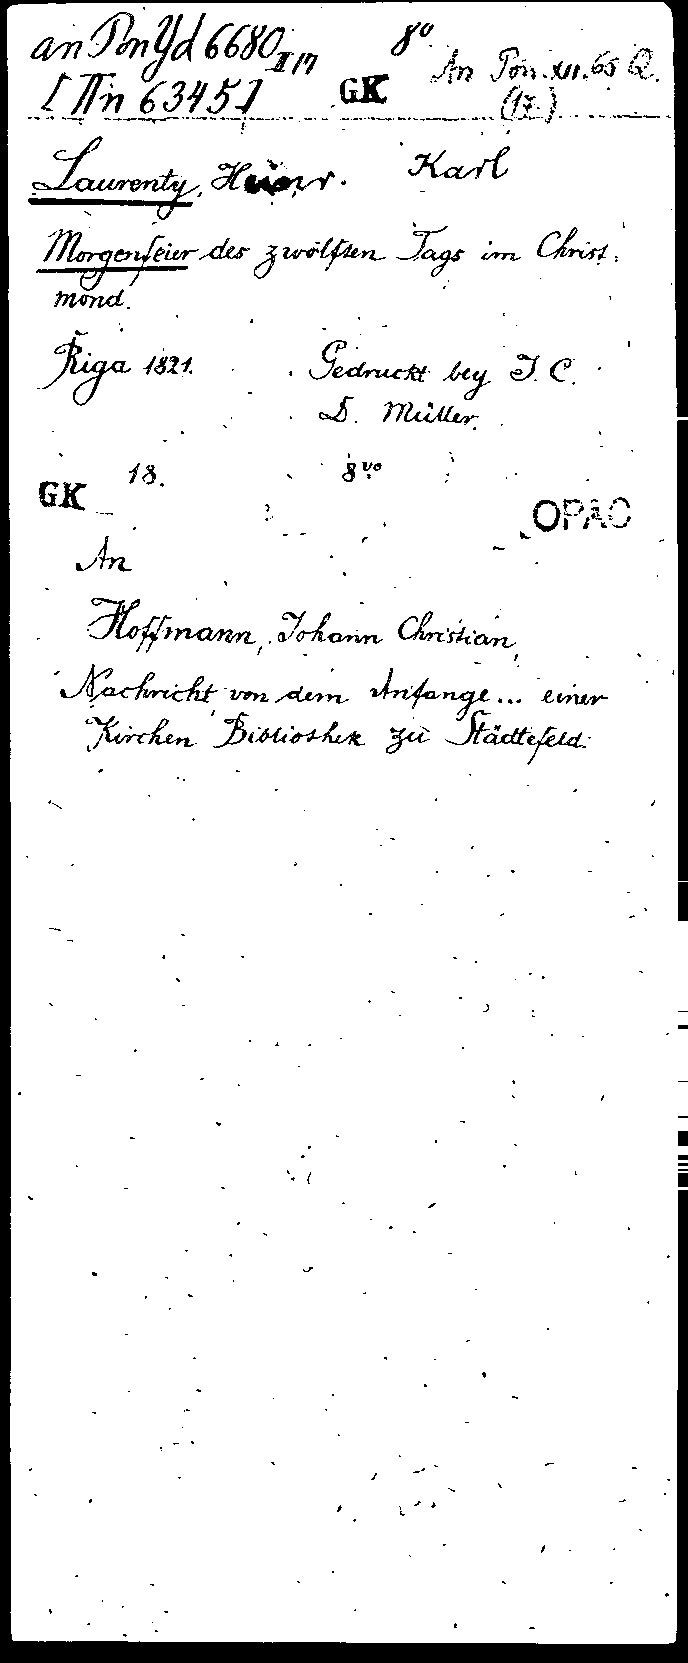 an Pon Yd 6680 II, 17 8°
[IIn 6345] GK An Pon. XII. 65 Q.
(17.)
Laurenty, Heinr. Karl
Morgenfeier des zwölften Tags im Christ-
mond.
Riga 1821. Gedruckt bey J. C.
D. Müller.
18. 8vo
GK OPAC
An
Hoffmann, Johann Christian,
Nachricht von dem Anfange... einer
Kirchen Bibliothek zu Städtefeld.